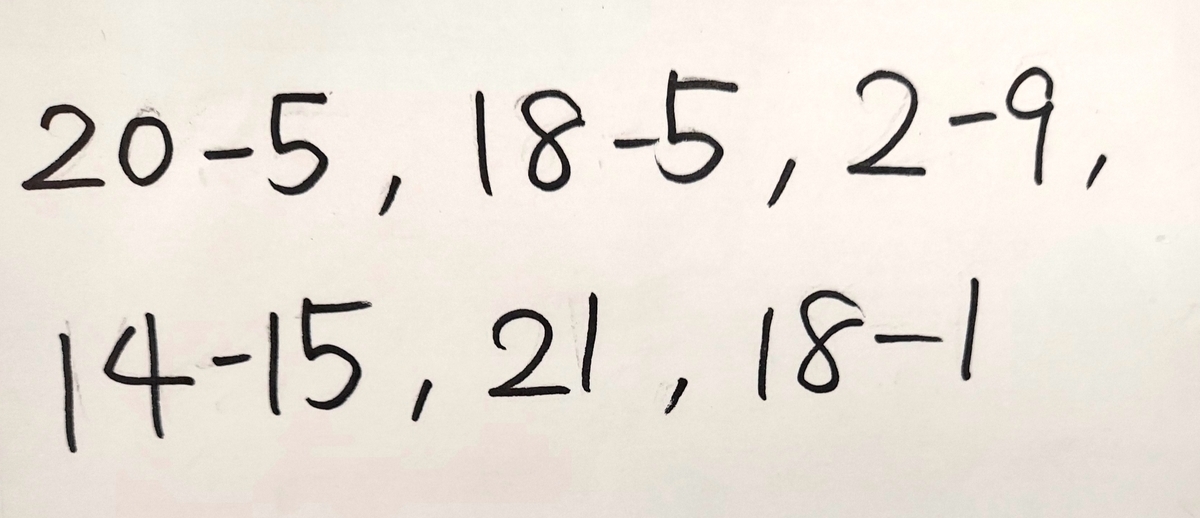 20-5, 18-5, 2-9,
14-15, 21, 18-1